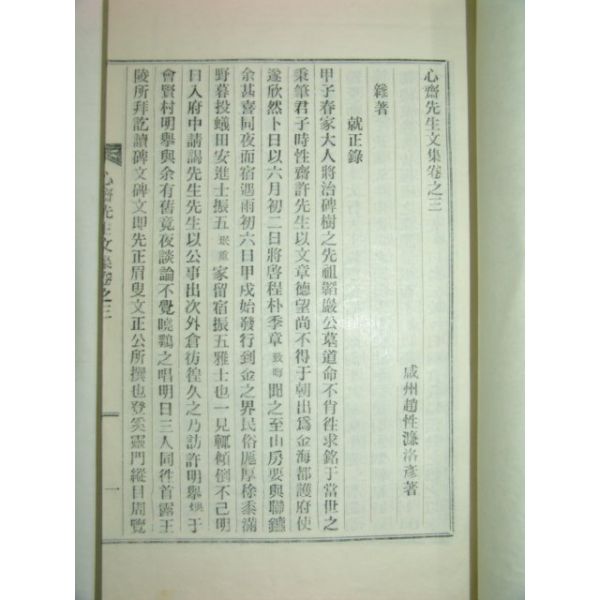 心齋先生文集卷之三
咸州趙性濂洛彥著
雜著
就正錄
甲子春家大人將治碑樹之先祖韜巖公墓道命不肖徃求銘于當世之
秉筆君子時性齋許先生以文章德望尚不得于朝出爲金海都護府使
遂欣然卜日以六月初二日將啓程朴季章致晦聞之至山房要與聯鑣
余甚喜同夜而宿遇雨初六日甲戌始發行到金之界民俗厖厚稌黍滿
野暮投蟻田安進士振五珉重家留宿振五雅士也一見輒傾倒不已明
日入府中請謁先生先生以公事出次外倉彷徨久之乃訪許明擧㷞于
會賢村明擧與余有舊竟夜談論不覺曉鷄之唱明日三人同徃首露王
陵所拜訖讀碑文碑文即先正眉叟文正公所撰也登 靈門縱目周覽
心齋先生文集卷之三
一